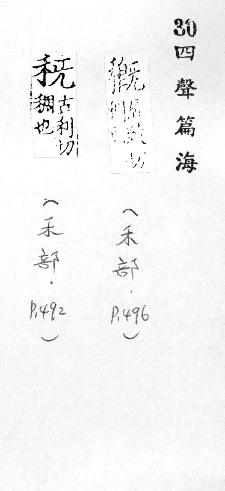 30四聲篇海
穊
(禾部.P.496)
古利切
稠也
(禾部.P.492)